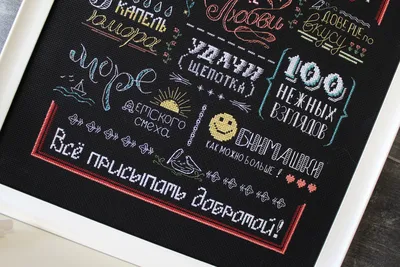 КАПЕЛЬ
юмора
Любви
ДОВЕРИЕ по
вкусу
УДАЧИ
ЩЕПОТКА
100
НЕЖНЫХ
ВЗГЛЯДОВ
Море
ДЕТСКОГО
смеха
ОБНИМАШКИ
КАК МОЖНО БОЛЬШЕ!
Всё присыпать добротой!